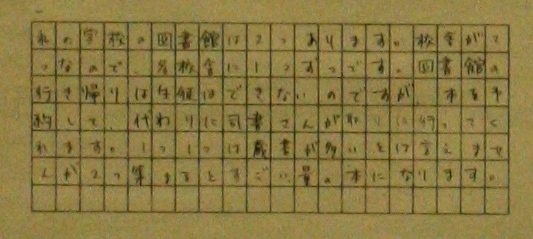 私の学校の図書館は2つあります。校舎が2
つなので、各校舎に1つずつです。図書館の
行き帰りは生徒はできないのですが、本を予
約して、代わりに司書さんが取りに行ってく
れます。1つ1つは蔵書が多いとは言えませ
んが2つ集まるとすごい量の本になります。